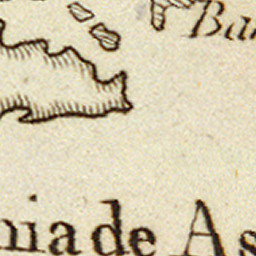 Ba
nia de As